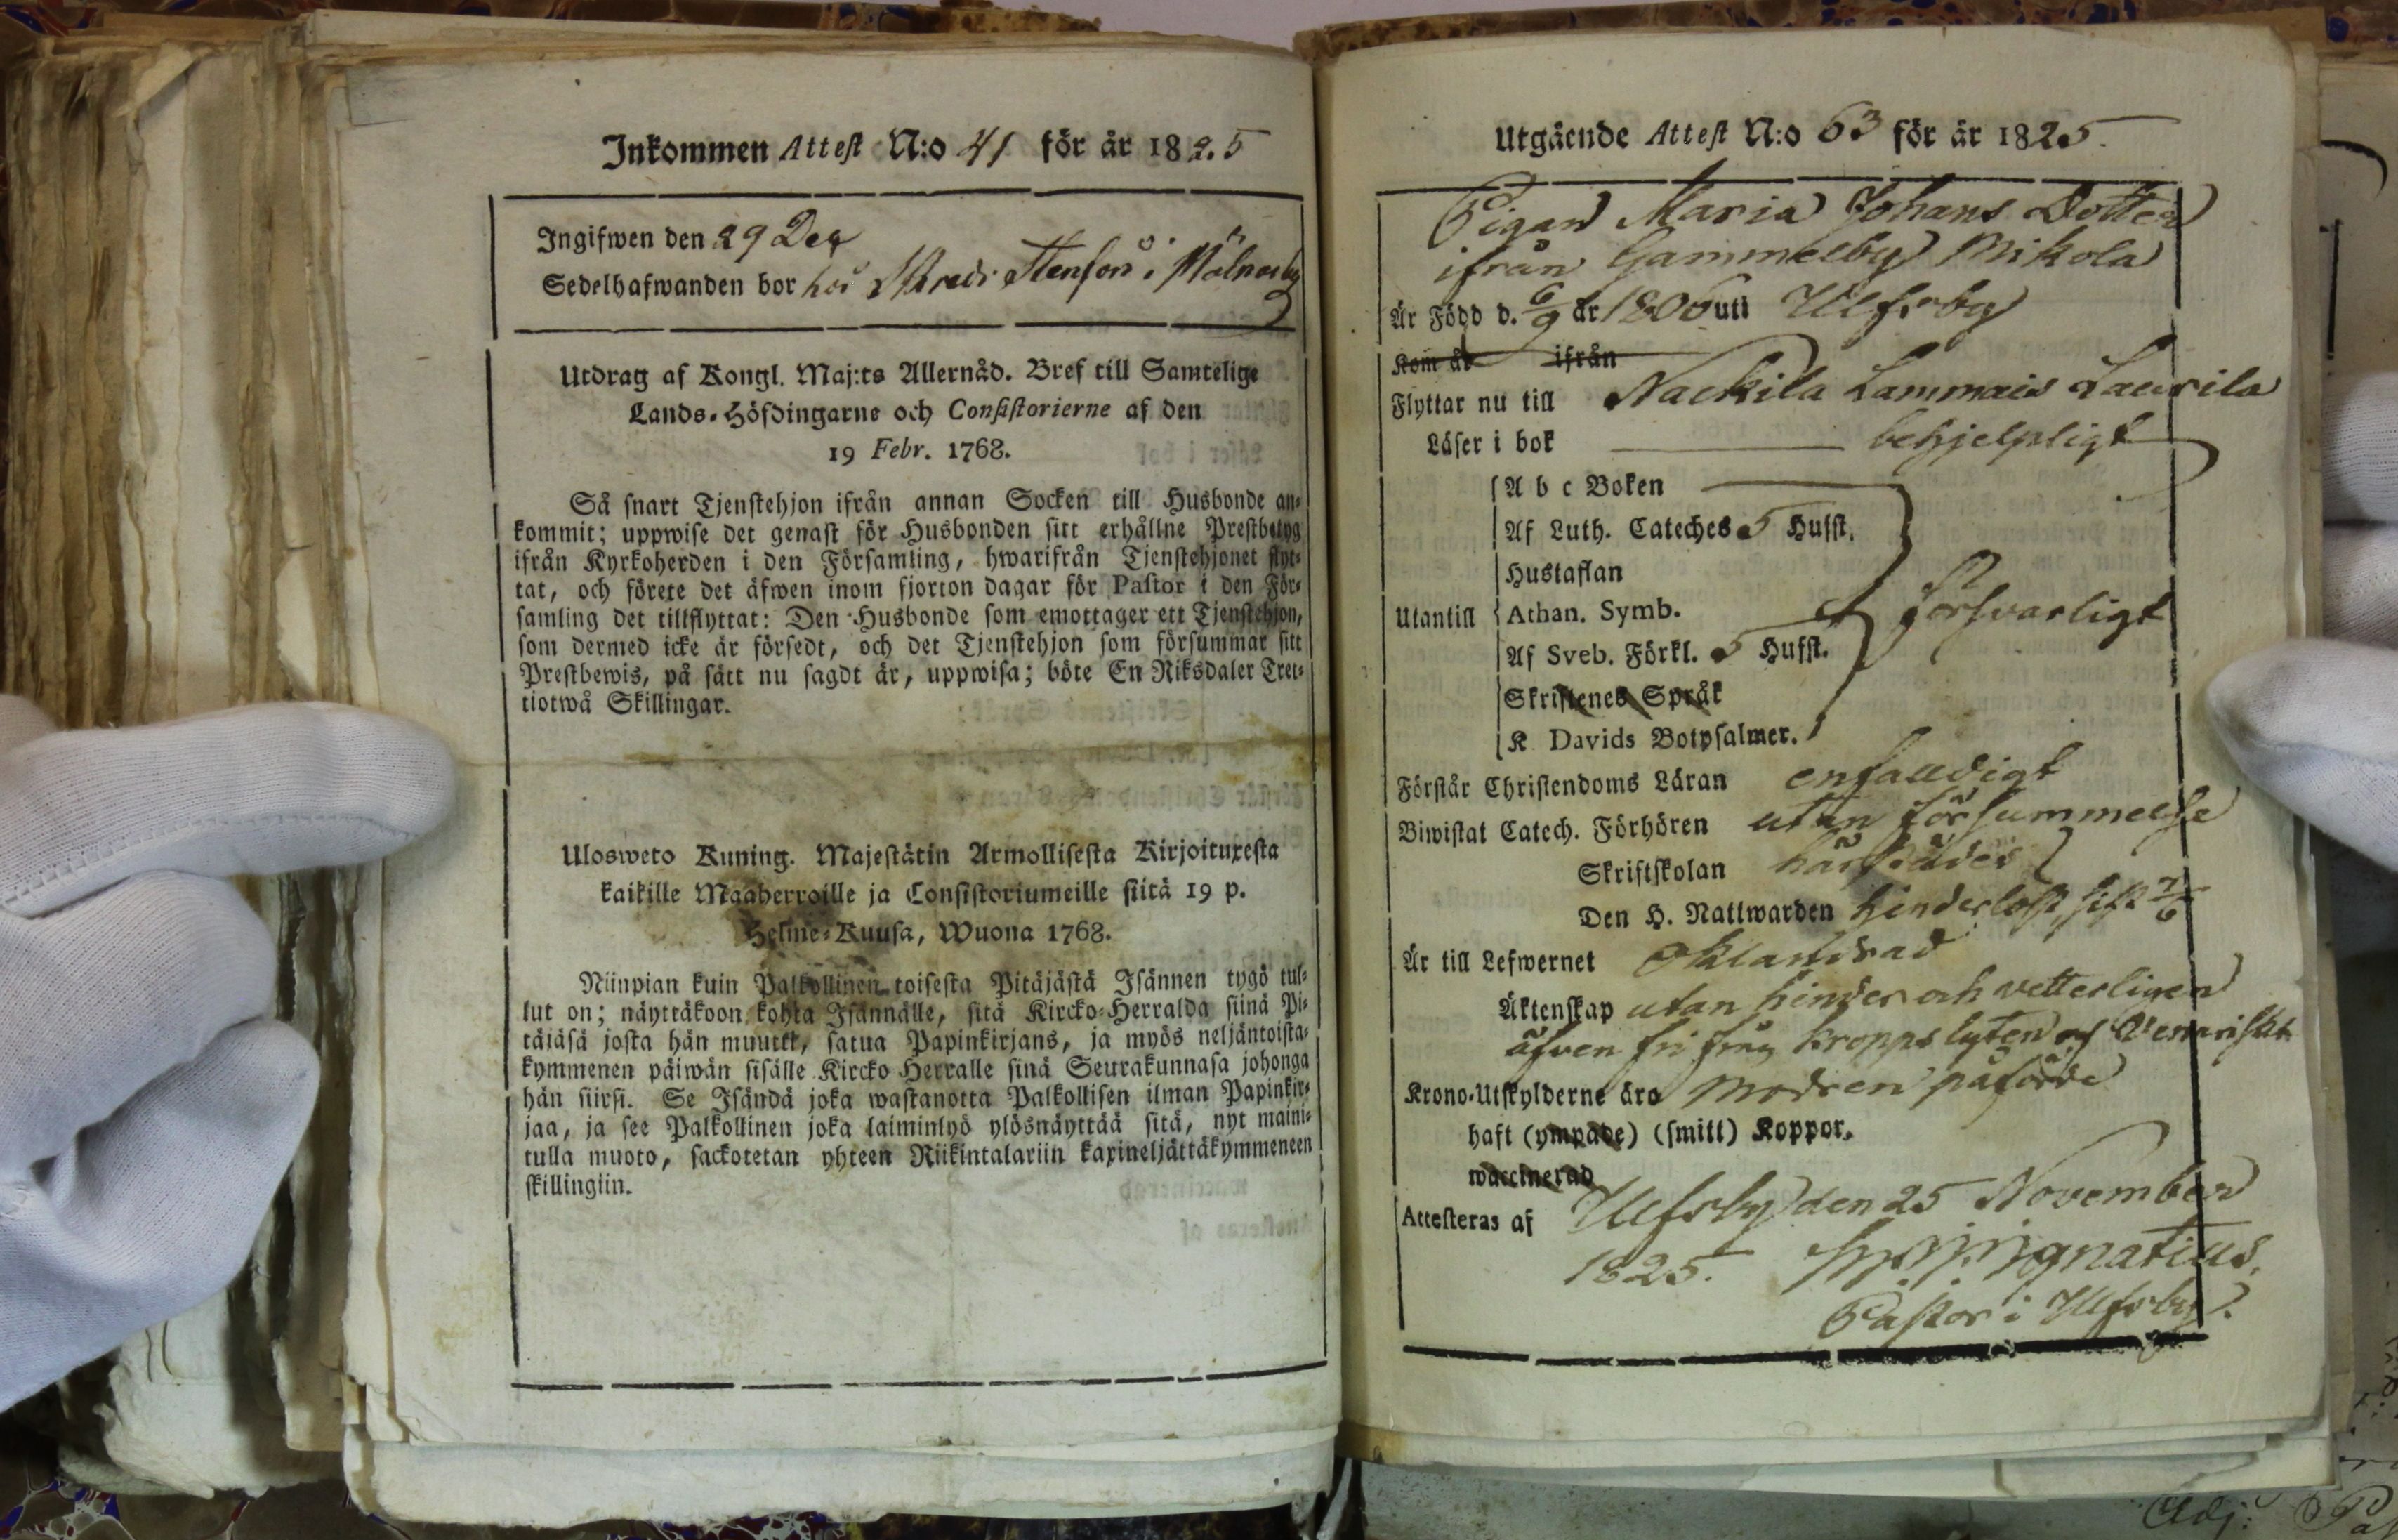 Inkommen Attest N:o 41 för år 1825
Ingifwen den 29 Dec
Sedelhafwanden bor hos Stenfors i
Utdrag af Kongl. Maj:ts Allernåd. Bref till Samtelige
Lands-Höfdingarne och Consistorierne af den
19 Febr. 1768.
Så snart Tjenstehjon ifrån annan Socken till Husbonde an-
kommit; uppwise det genast för Husbonden sitt erhållne Prestbetyg
ifrån Kyrkoherden i den Församling, hwarifrån Tjenstehjonet flyt-
tat, och förete det äfwen inom fjorton dagar för Pastor i den För-
samling det tillflyttat: Den Husbonde som emottager ett Tjenstehjon,
som dermed icke är försedt, och det Tjenstehjon som försummar sitt
Prestbewis, på sätt nu sagdt är, uppwisa; böte En Riksdaler Tret-
tiotwå Skillingar.
Ulosweto Kuning. Majestätin Armollisesta Kirjoituxesta
kaikille Maaherroille ja Consistoriumeille siitä 19 p.
Helme-Kuusa, Wuona 1768.
Niinpian kuin Palkollinen toisesta Pitäjästä Isännen tygö tul-
lut on; näyttäkoon kohta Isännälle, sitä Kircko-Herralda siinä Pi-
täjäsä josta hän muutti, satua Papinkirjans, ja myös neljäntoista-
kymmenen päiwän sisälle Kircko Herralle sinä Seurakunnasa johonga
hän siirsi. Se Isändä joka wastanotta Palkollisen ilman Papinkir-
jaa, ja see Palkollinen joka laiminlyö ylösnäyttää sitä, nyt maini-
tulla muoto, sackotetan yhteen Riikintalariin kaxineljättäkymmeneen
skillingiin.
Utgående Attest N:o 63 för år 1825.
Pigan Maria Johans Dotter
ifrån Gammelby Mikola
Är Född d. 6/9 år 1806 uti Ulfsby
Kom år ifrån
Flyttar nu till Nackila Lammais Laurila
Läser i bok behjelpligt
A b c Boken
Af Luth. Cateches 5 Hufst.
Hustaflan
Utantill Athan. Symb. försvarligt
Af Sveb. Förkl. 5 Hufst.
Skriftenes Språk
K Davids Botpsalmer.
Förstår Christendoms Läran enfalldigt
Biwistat Catech. Förhören utan försummelse
Skriftskolan härstädes
Den H. Nattwarden hinderlöst sist 7/6
Är till Lefwernet oklandrad
Äktenskap utan hinder och vetterligen
äfven fri från kroppslyten af
Krono-Utskylderne äro Modren påförde
haft (ympade) (smitt) Koppor.
waccinerad
Attesteras af Ulfsby den 25 November
1825. Ignatius,
Pastor i Ulfsby.
Adj: